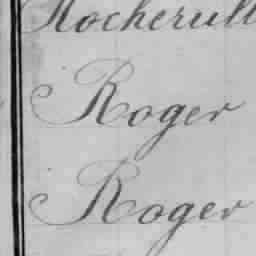 Rocherull
Roger
Roger